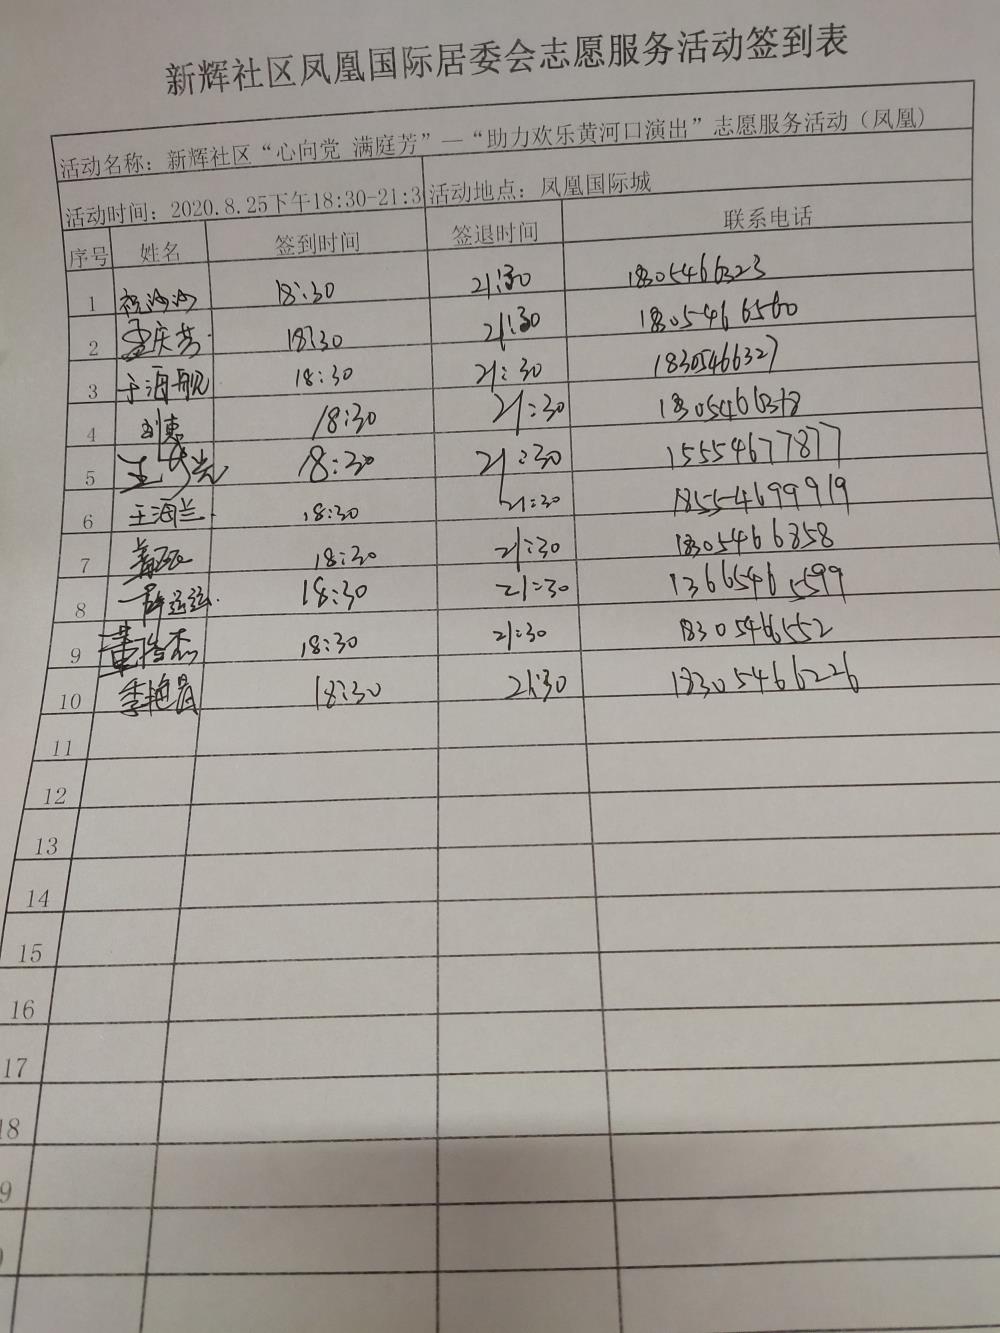 新辉社区凤凰国际居委会志愿服务活动签到表
活动名称：新辉社区“心向党 满庭芳”—“助力欢乐黄河口演出”志愿服务活动（凤凰）
活动时间：2020.8.25下午18:30-21:3 活动地点：凤凰国际城
序号 姓名 签到时间 签退时间 联系电话
1 祝沙沙 18:30 21:30 18305466323
2 孟庆芳 18:30 21:30 18305466560
3 于海舰 18:30 21:30 18305466327
4 刘东 18:30 21:30 18305466378
5 18:30 21:30 15554677877
6 王海兰 18:30 21:30 18554699919
7 18:30 21:30 18305466858
8 许运运 18:30 21:30 13665465599
9 18:30 21:30 18305466552
10 李艳晨 18:30 21:30 18305466226
11
12
13
14
15
16
17
18
9